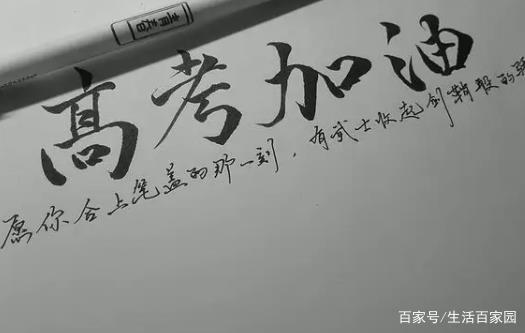 青春
高考加油
愿你合上笔盖的那一刻，有武士收起剑鞘般的骄
百家号/生活百家园